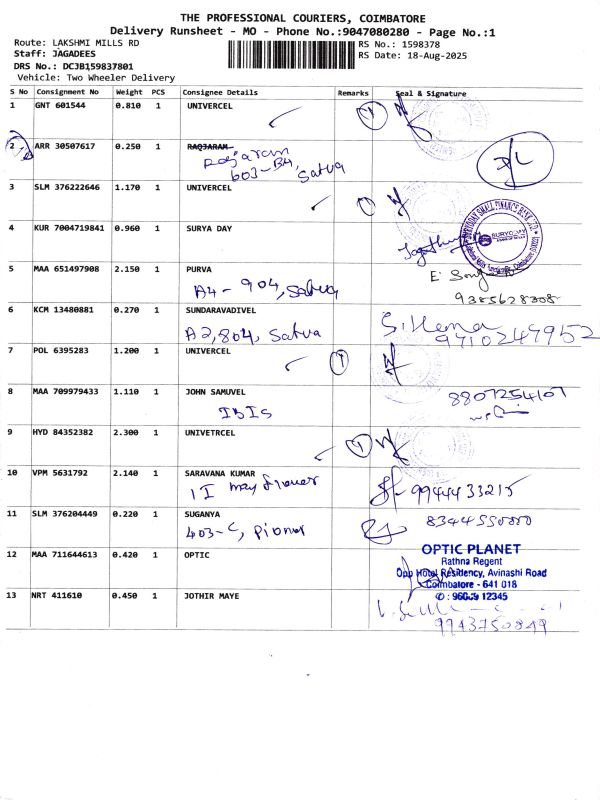 THE PROFESSIONAL COURIERS, COIMBATORE
Delivery Runsheet - MO - Phone No.:9047080280 - Page No.:1
Route: LAKSHMI MILLS RD
RS No.: 1598378
Staff: JAGADEES
RS Date: 18-Aug-2025
DRS No.: DCJB159837801
Vehicle: Two Wheeler Delivery
S No Consignment No Weight PCS Consignee Details Remarks Seal & Signature
1 GNT 601544 0.810 1 UNIVERCEL 1
2 ARR 30507617 0.250 1 RAQJARAM
Rajaram
603-B4, Satva
3 SLM 376222646 1.170 1 UNIVERCEL 1
4 KUR 7004719841 0.960 1 SURYA DAY
SURYODAY SMALL FINANCE BANK LTD
SURYODAY
5 MAA 651497908 2.150 1 PURVA
A4 - 904, Satva
9385628308
6 KCM 13480881 0.270 1 SUNDARAVADIVEL
A2, 804, Satva
S. Hema
9710247952
7 POL 6395283 1.200 1 UNIVERCEL 1
8 MAA 709979433 1.110 1 JOHN SAMUVEL
IBIS
8807254107
9 HYD 84352382 2.300 1 UNIVETRCEL 1
10 VPM 5631792 2.140 1 SARAVANA KUMAR
9944433215
11 SLM 376204449 0.220 1 SUGANYA
403-C, Pioner
8344550000
12 MAA 711644613 0.420 1 OPTIC
OPTIC PLANET
Rathna Regent
Opp Hotel Residency, Avinashi Road
Coimbatore - 641 018
13 NRT 411610 0.450 1 JOTHIR MAYE
9943750849